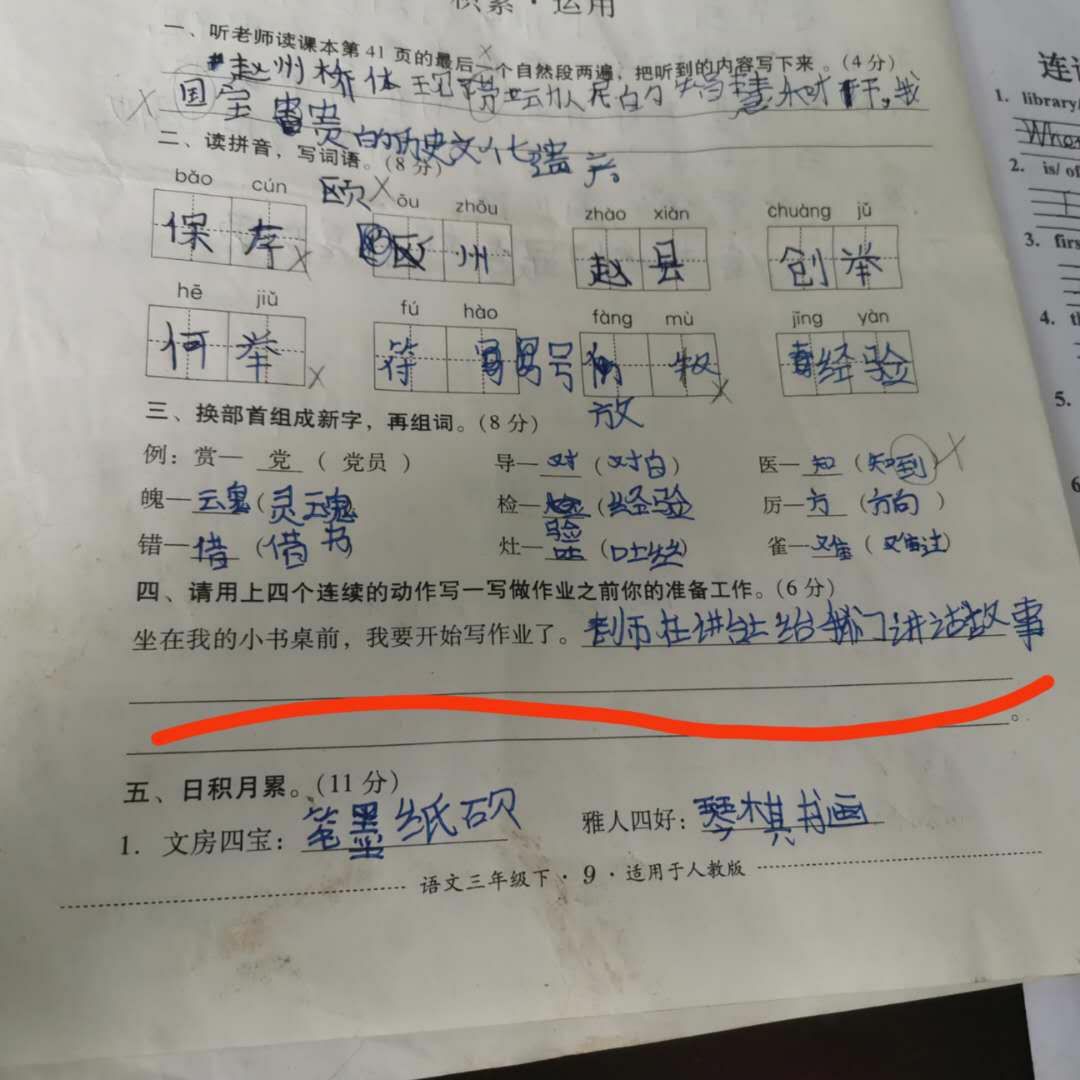 积累·运用
一、听老师读课本第41页的最后一个自然段两遍，把听到的内容写下来。(4分)
赵州桥体现
国宝贵的历史文化遗
二、读拼音，写词语。(8分)
欧
bǎo cún ōu zhōu zhào xiàn chuàng jǔ
保存 欧州 赵县 创举
hē jiǔ fú hào fàng mù jīng yàn
何举 符号 牧 经验
放
三、换部首组成新字，再组词。(8分)
例：赏— 党 ( 党员 ) 导—对 (对白) 医—知 (知到)
魄—魂 (灵魂 检—验 (经验 厉—方 (方向 )
错—借 (借书 灶—吐 (吐丝) 雀—
四、请用上四个连续的动作写一写做作业之前你的准备工作。(6分)
坐在我的小书桌前，我要开始写作业了。师在讲台上给我们讲话故事
。
五、日积月累。(11分)
1. 文房四宝：笔墨纸砚 雅人四好：琴棋书画
语文三年级下·9·适用于人教版
连
1. library/
Who
2. is/ of
3. firs
4. th
5.
6